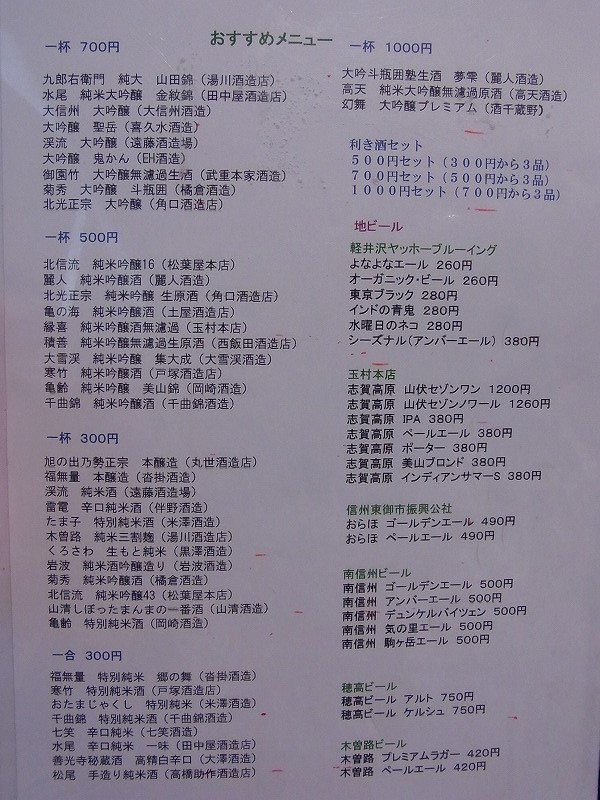 おすすめメニュー
一杯 700円
九郎右衛門 純大 山田錦（湯川酒造店）
水尾 純米大吟醸 金紋錦（田中屋酒造店）
大信州 大吟醸（大信州酒造）
大吟醸 聖岳（喜久水酒造）
渓流 大吟醸（遠藤酒造場）
大吟醸 鬼かん（EH酒造）
御園竹 大吟醸無濾過生酒（武重本家酒造）
菊秀 大吟醸 斗瓶囲（橘倉酒造）
北光正宗 大吟醸（角口酒造店）
一杯 500円
北信流 純米吟醸16（松葉屋本店）
麗人 純米吟醸酒（麗人酒造）
北光正宗 純米吟醸 生原酒（角口酒造店）
亀の海 純米吟醸酒（土屋酒造店）
縁喜 純米吟醸酒無濾過（玉村本店）
積善 純米吟醸無濾過生原酒（西飯田酒造店）
大雪渓 純米吟醸 集大成（大雪渓酒造）
寒竹 純米吟醸酒（戸塚酒造店）
亀齢 純米吟醸 美山錦（岡崎酒造）
千曲錦 純米吟醸酒（千曲錦酒造）
一杯 300円
旭の出乃勢正宗 本醸造（丸世酒造店）
福無量 本醸造（沓掛酒造）
渓流 純米酒（遠藤酒造場）
雷電 辛口純米酒（伴野酒造）
たま子 特別純米酒（米澤酒造）
木曽路 純米三割麹（湯川酒造店）
くろさわ 生もと純米（黒澤酒造）
岩波 純米酒吟醸造り（岩波酒造）
菊秀 純米酒（橘倉酒造）
北信流 純米吟醸43（松葉屋本店）
山清しぼったまんまの一番酒（山清酒造）
亀齢 特別純米酒（岡崎酒造）
一合 300円
福無量 特別純米 郷の舞（沓掛酒造）
寒竹 特別純米酒（戸塚酒造店）
おたまじゃくし 特別純米（米澤酒造）
千曲錦 特別純米酒（千曲錦酒造）
七笑 辛口純米（七笑酒造）
水尾 辛口純米 一味（田中屋酒造店）
善光寺秘蔵酒 高精白辛口（大澤酒造）
松尾 手造り純米酒（高橋助作酒造店）
一杯 1000円
大吟斗瓶囲塾生酒 夢雫（麗人酒造）
高天 純米大吟醸無濾過原酒（高天酒造）
幻舞 大吟醸プレミアム（酒千蔵野）
利き酒セット
５００円セット（３００円から３品）
７００円セット（５００円から３品）
１０００円セット（７００円から３品）
地ビール
軽井沢ヤッホーブルーイング
よなよなエール 260円
オーガニック・ビール 260円
東京ブラック 280円
インドの青鬼 280円
水曜日のネコ 280円
シーズナル（アンバーエール） 380円
玉村本店
志賀高原 山伏セゾンワン 1200円
志賀高原 山伏セゾンノワール 1260円
志賀高原 IPA 380円
志賀高原 ペールエール 380円
志賀高原 ポーター 380円
志賀高原 美山ブロンド 380円
志賀高原 インディアンサマーS 380円
信州東御市振興公社
おらほ ゴールデンエール 490円
おらほ ペールエール 490円
南信州ビール
南信州 ゴールデンエール 500円
南信州 アンバーエール 500円
南信州 デュンケルバイツェン 500円
南信州 気の里エール 500円
南信州 駒ヶ岳エール 500円
穂高ビール
穂高ビール アルト 750円
穂高ビール ケルシュ 750円
木曽路ビール
木曽路 プレミアムラガー 420円
木曽路 ペールエール 420円